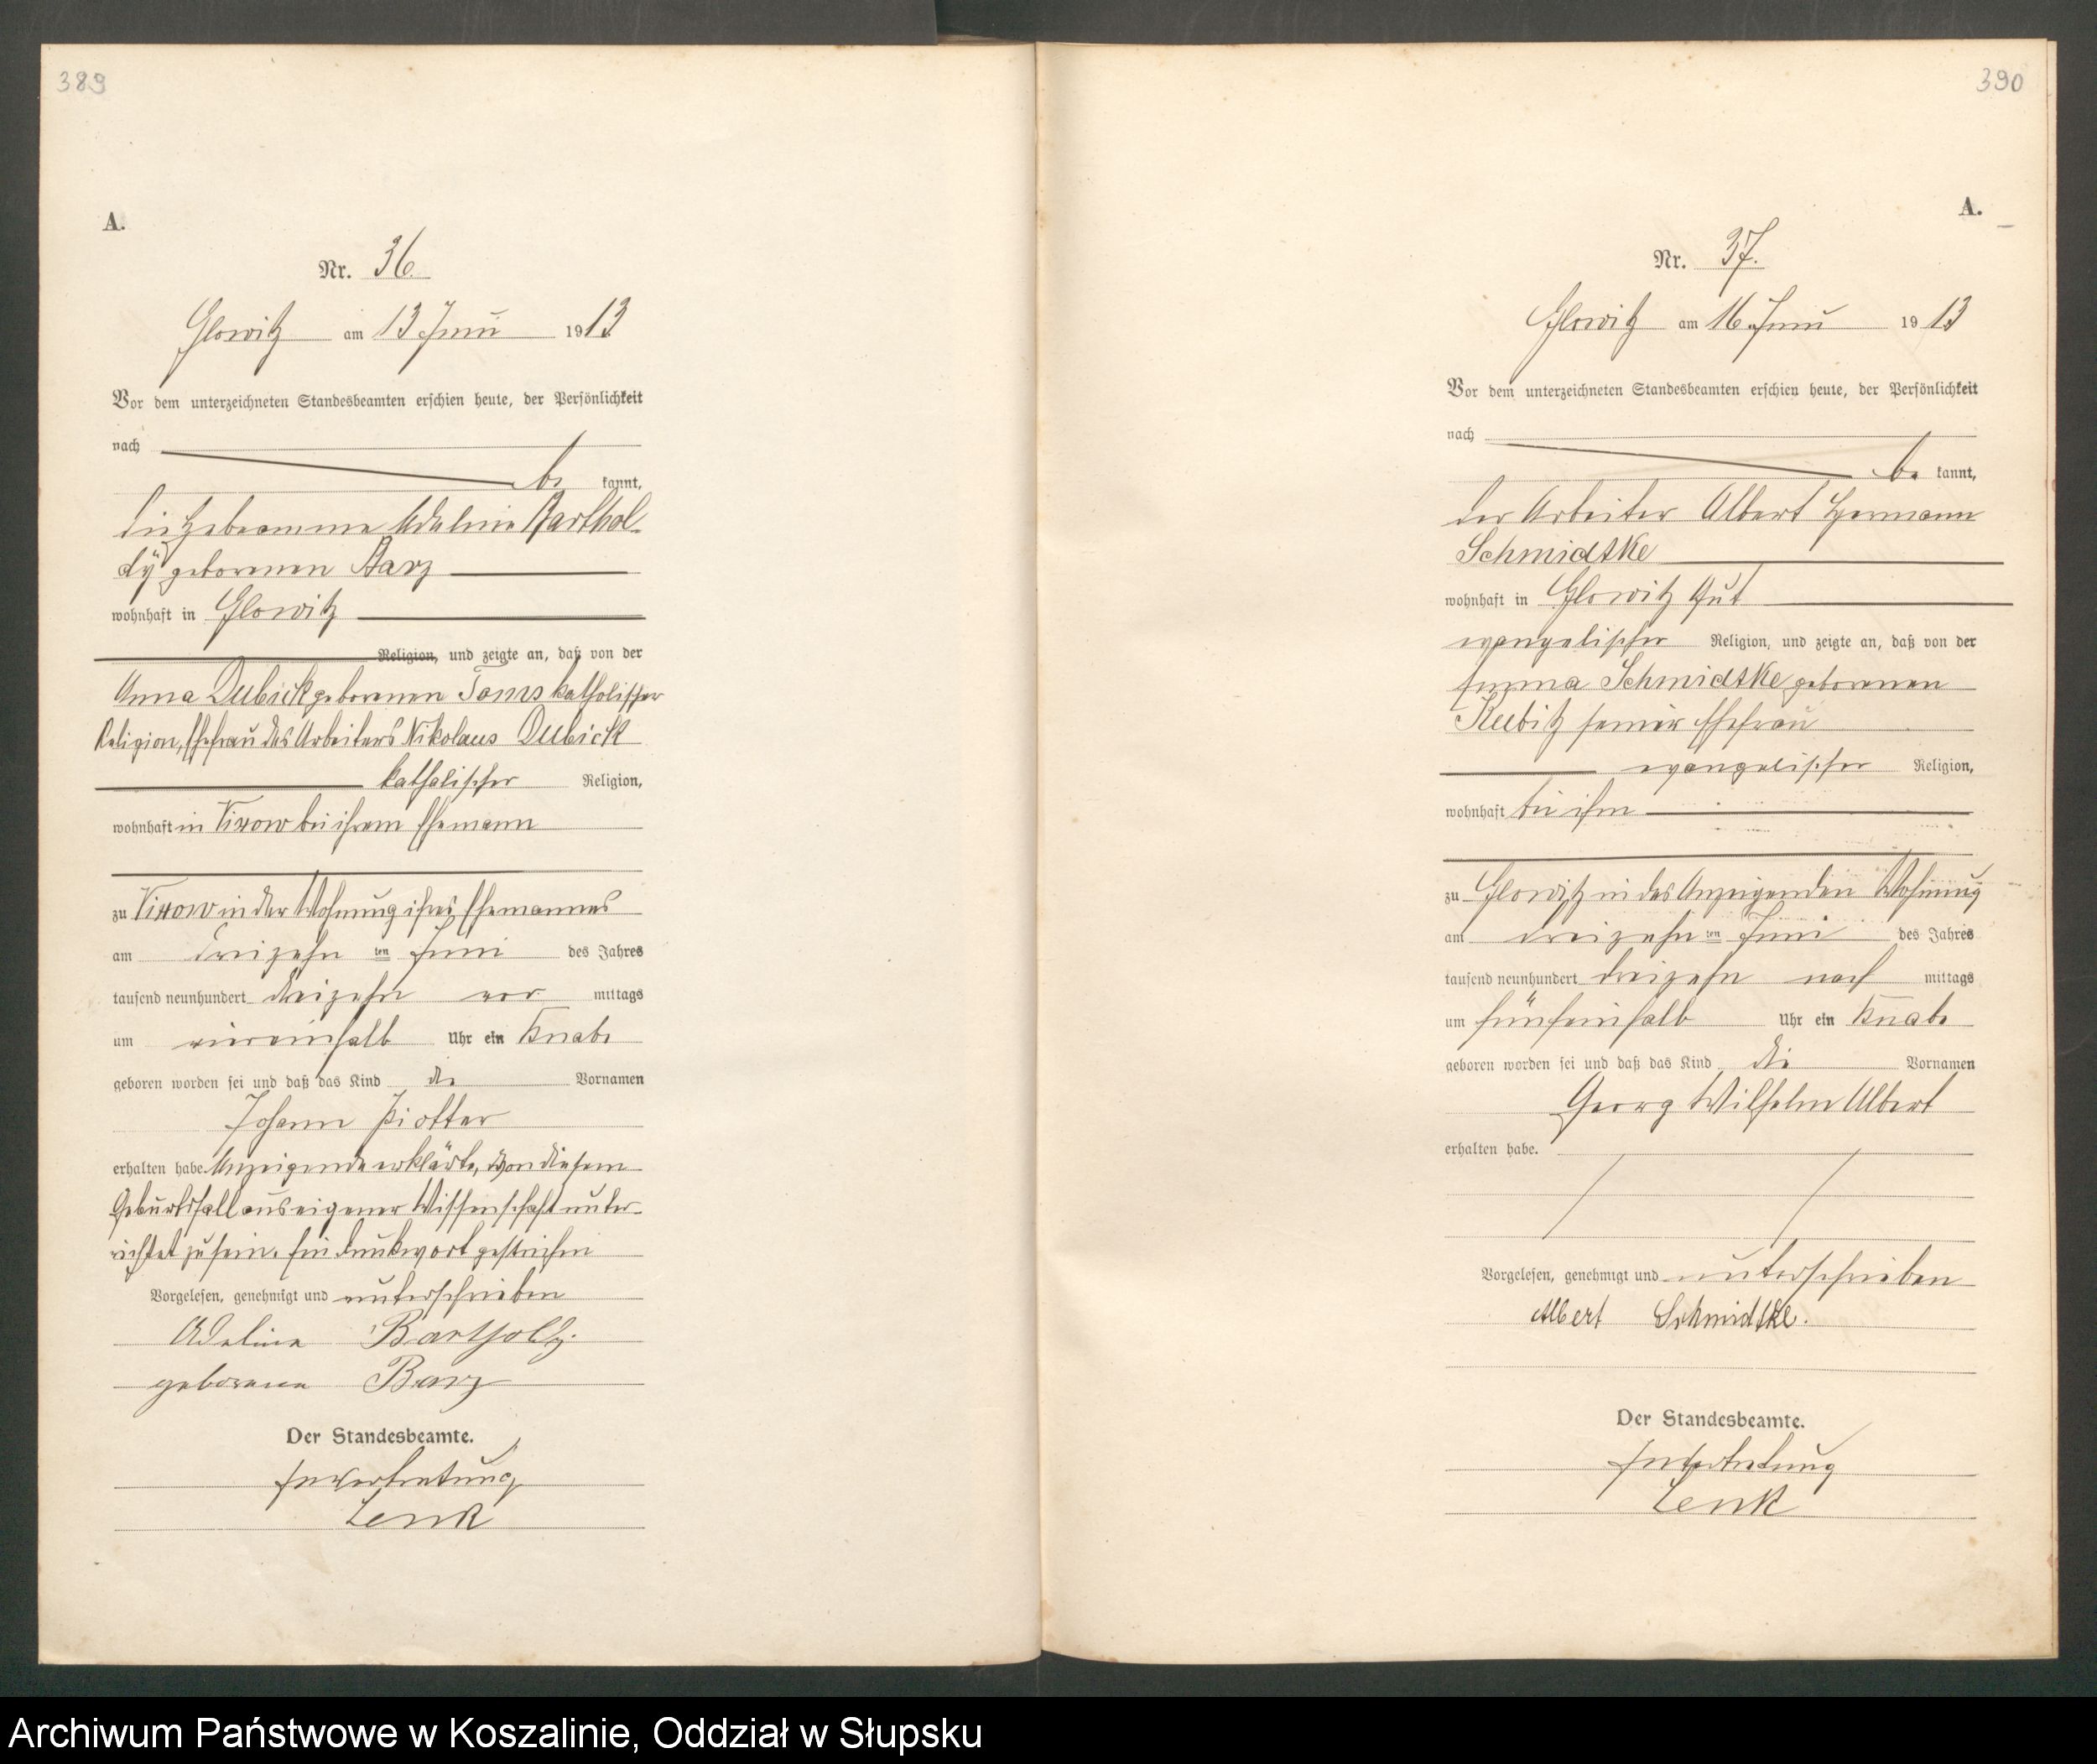 389
A.
Nr. 36.
Glowitz am 13 Juni 1913
Vor dem unterzeichneten Standesbeamten erschien heute, der Persönlichkeit
nach
be kannt,
die Hebeamme Adeline Barthol-
dÿ geborenen Barz
wohnhaft in Glowitz
Religion, und zeigte an, daß von der
Anna Dubick geborenen katholischer
Religion, Ehefrau des Arbeiters Nikolaus Dubick
katholischer Religion,
wohnhaft in Vixow bei ihrem Ehemann
zu Vixow in der Wohnung ihres Ehemannes
am dreizehn ten Juni des Jahres
tausend neunhundert dreizehn vor mittags
um viereinhalb Uhr ein Knabe
geboren worden sei und daß das Kind die Vornamen
Johann Piotter
erhalten habe. Anzeigende erklärte, von diesem
Geburtsfall aus eigener Wissenschaft unter-
richtet zu sein. Ein Druckwort gestrichen
Vorgelesen, genehmigt und unterschrieben
Adeline Bartholdy.
geborene Barz
Der Standesbeamte.
In Vertretung
Lenk
390
A.
Nr. 37.
Glowitz am 16. Juni 1913
Vor dem unterzeichneten Standesbeamten erschien heute, der Persönlichkeit
nach
be kannt,
der Arbeiter Albert Hermann
Schmidtke
wohnhaft in Glowitz Gut
evangelischer Religion, und zeigte an, daß von der
Emma Schmidtke geborenen
Kubitz seiner Ehefrau
evangelischer Religion,
wohnhaft bei ihm
zu Glowitz in des Anzeigenden Wohnung
am dreizehn ten Juni des Jahres
tausend neunhundert dreizehn nach mittags
um fünfeinhalb Uhr ein Knabe
geboren worden sei und daß das Kind die Vornamen
Georg Wilhelm Albert
erhalten habe.
Vorgelesen, genehmigt und unterschrieben
Albert Schmidtke.
Der Standesbeamte.
In Vertretung
Lenk
Archiwum Państwowe w Koszalinie, Oddział w Słupsku